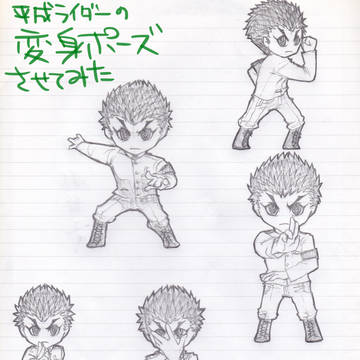 平成ライダーの
変身ポーズ
させてみた